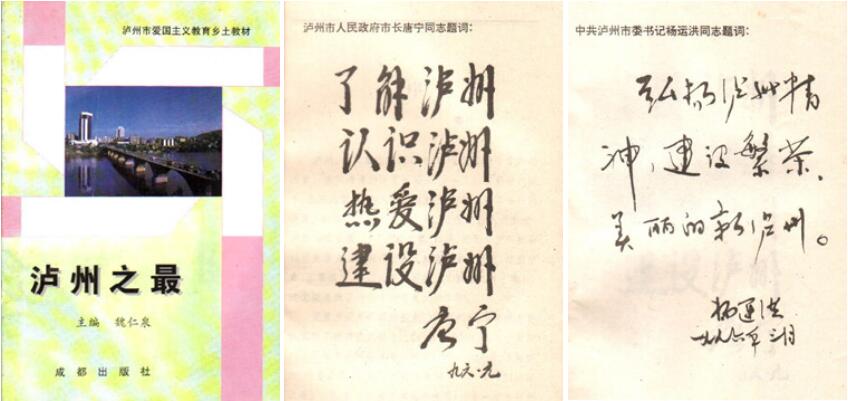 泸州市爱国主义教育乡土教材
泸州之最
主编 魏仁泉
成都出版社
泸州市人民政府市长唐宁同志题词：
了解泸州
认识泸州
热爱泸州
建设泸州
唐宁
九六·元
中共泸州市委书记杨运洪同志题词：
弘扬泸州精
神，建设繁荣、
美丽的新泸州。
杨运洪
一九九六年三月